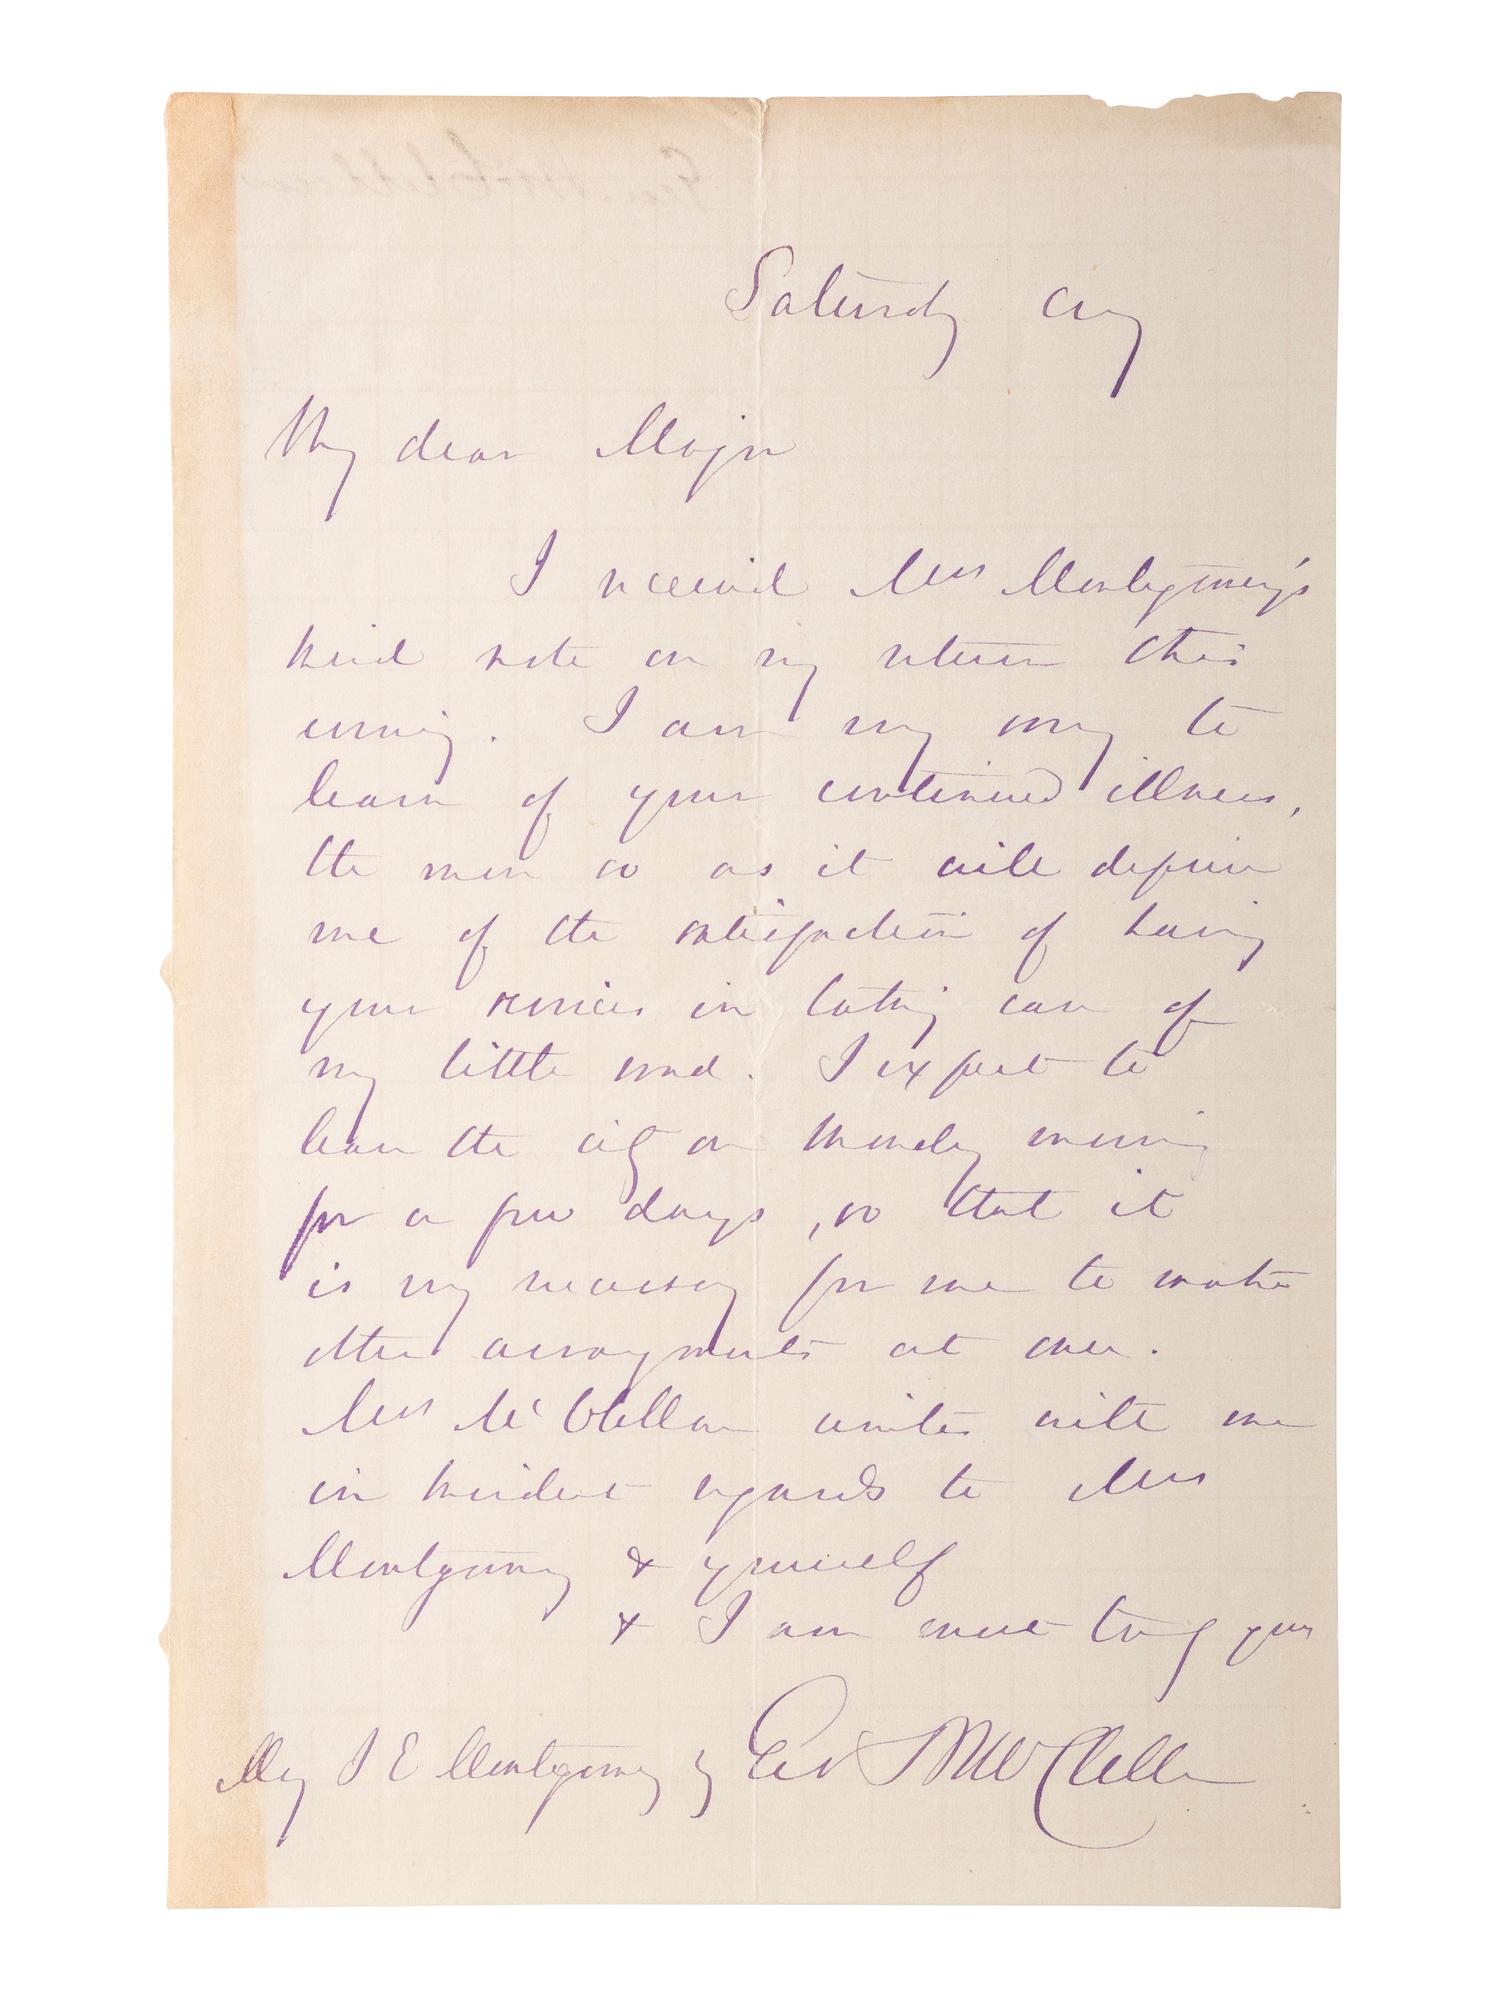 Saturday evg
My dear Major
I received Mrs Montgomery's
kind note on my return this
evening. I am very sorry to
learn of your continued illness,
the more so as it will deprive
me of the satisfaction of having
your services in taking care of
my little ward. I expect to
leave the city on Monday evening
for a few days, so that it
is very necessary for me to make
other arrangements at once.
Mrs McClellan unites with me
in kindest regards to Mrs
Montgomery & yourself
& I am most truly yours
Geo B McClellan
Maj J E Montgomery